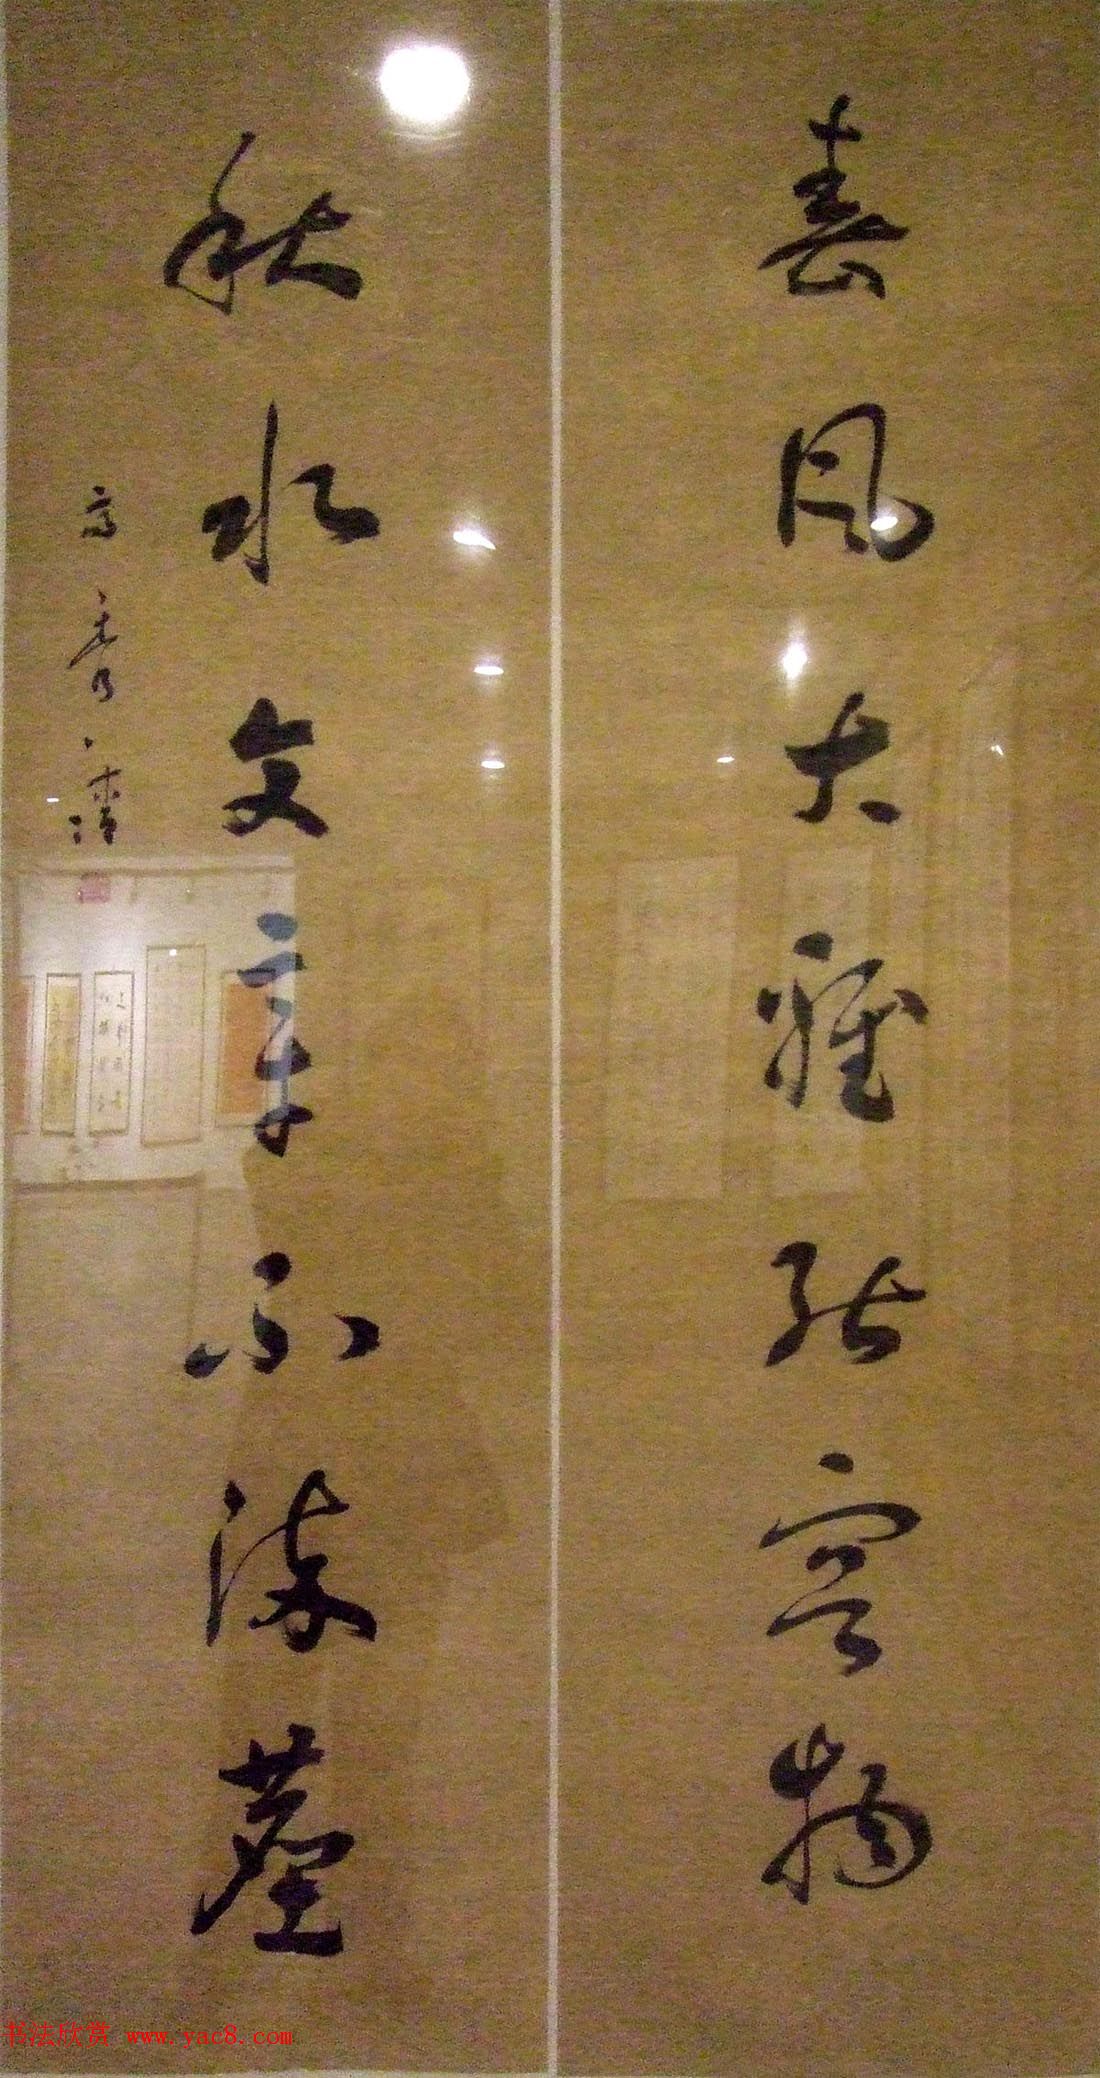 春风大雅能容物
秋水文章不染尘
书法欣赏 www.yac8.com